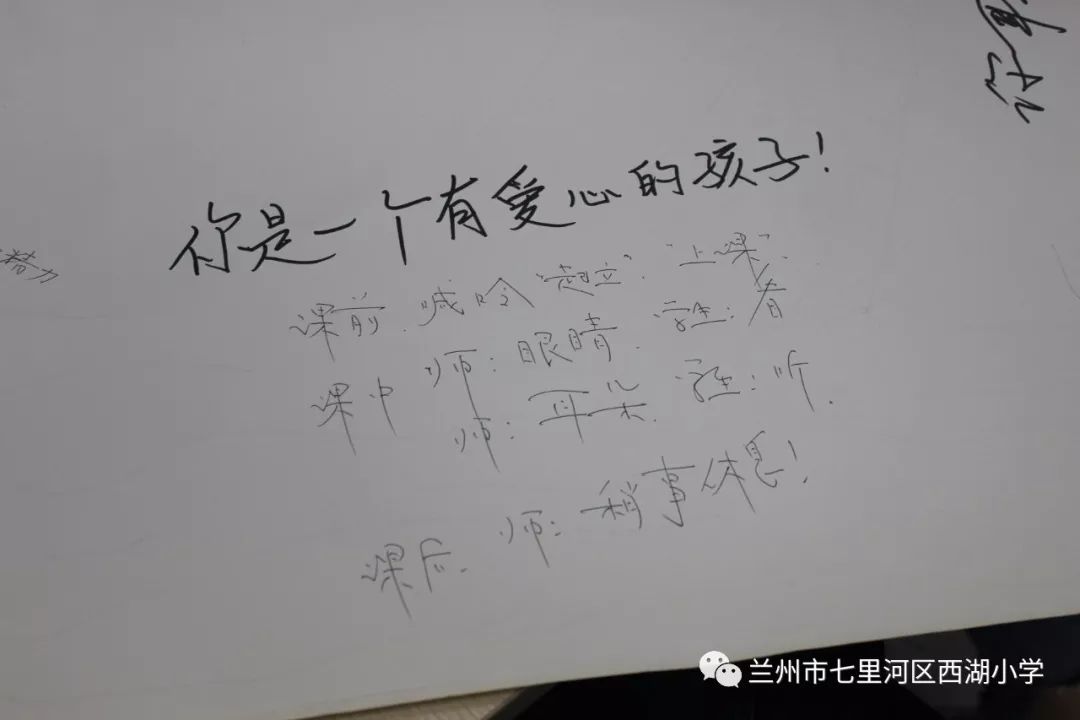 你是一个有爱心的孩子!
课前. 喊令“起立”. “上课”.
课中 师: 眼睛. 学生: 看
师: 耳朵. 学生: 听.
课后. 师: 稍事休息!
兰州市七里河区西湖小学